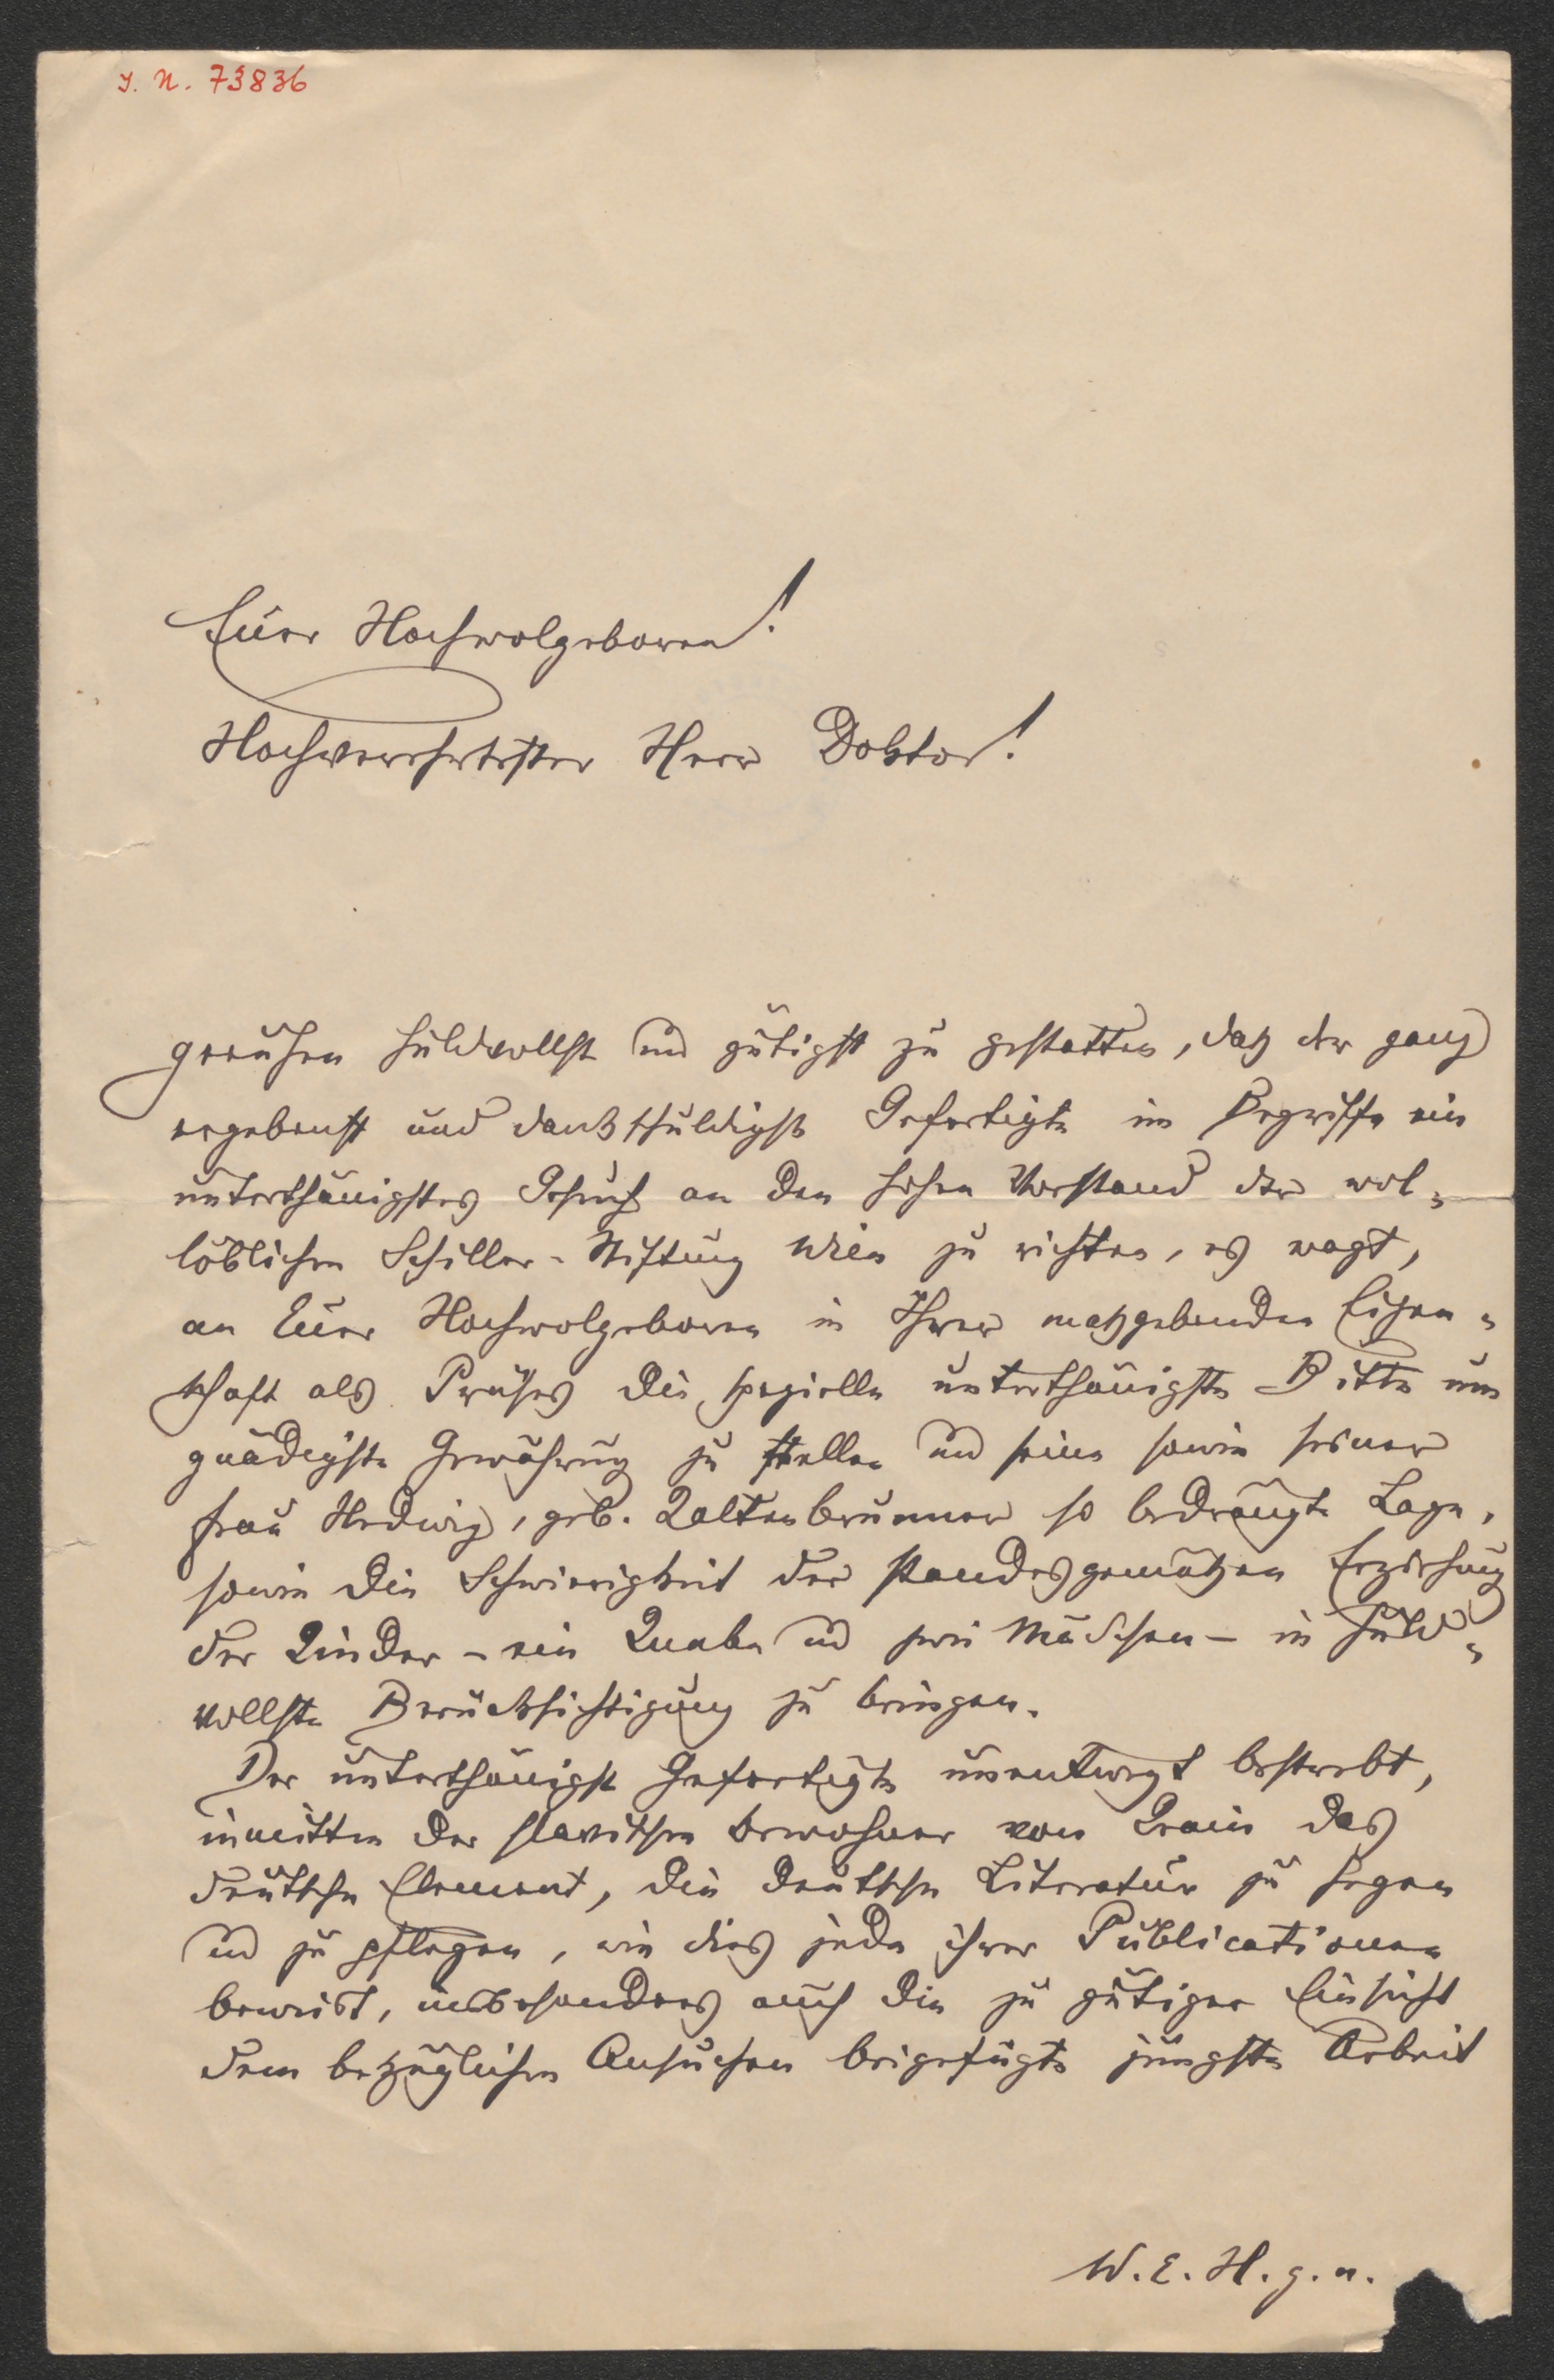 I. N. 73836
Euer Hochwolgeboren!
Hochverehrtester Herr Doktor!
geruhen huldvollst und gütigst zu gestatten, daß der ganz
ergebenst und dankschuldigst Gefertigte im Begriffe ein
unterthänigstes Gesuch an den hohen Vorstand der wol-
löblichen Schiller-Stiftung Wien zu richten, es wagt,
an Euer Hochwolgeboren in Ihrer maßgebenden Eigen-
schaft als Präses die spezielle unterthänigste Bitte um
gnädigste Gewährung zu stellen und seine sowie seiner
Frau Hedwig, geb. Kaltenbrunner so bedrängte Lage,
sowie die Schwierigkeit der standesgemäßen Erziehung
der Kinder – ein Knabe und zwei Mädchen – in huld-
vollste Berücksichtigung zu bringen.
Der unterthänigst Gefertigte unentwegt bestrebt,
inmitten der slavischen Bewohner von Krain das
deutsche Element, die deutsche Literatur zu hegen
und zu pflegen, wie dies jede ihrer Publicationen
beweist, insbesonders auch die zu gütiger Einsicht
dem bezüglichen Ansuchen beigefügte jüngste Arbeit
W. E. H. g. n.